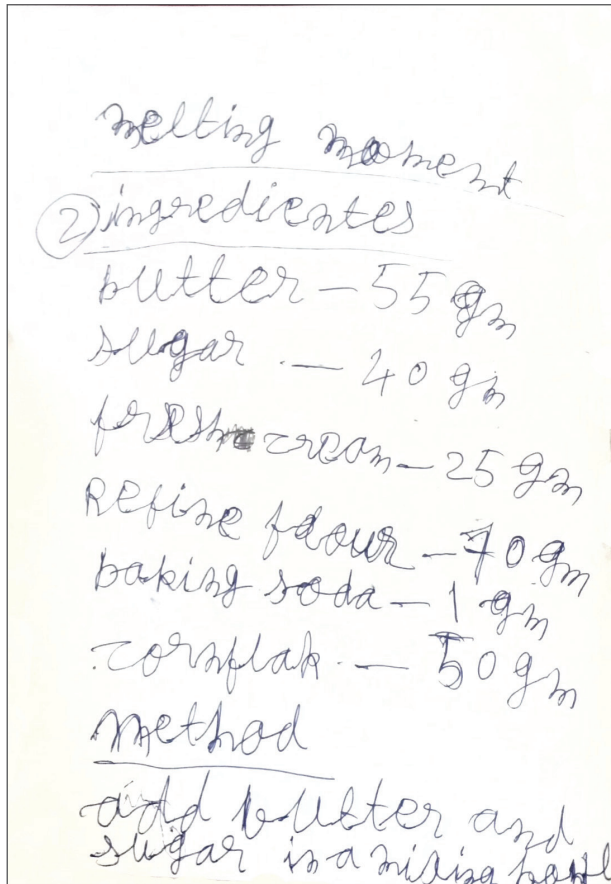 melting moment
② ingredientes
butter – 55 gm
sugar. – 40 gm
fresh cream – 25 gm
Refine flour – 70 gm
baking soda – 1 gm
cornflak. – 50 gm
method
add butter and
sugar in a mixing bowl